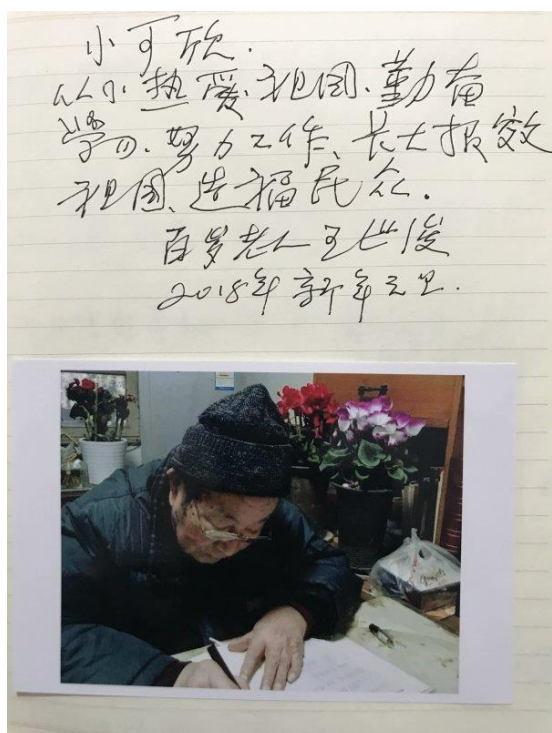 小可欣.
从小热爱祖国、勤奋
学习、努力工作、长大报效
祖国、造福民众.
百岁老人王世俊
2018年新年元旦.